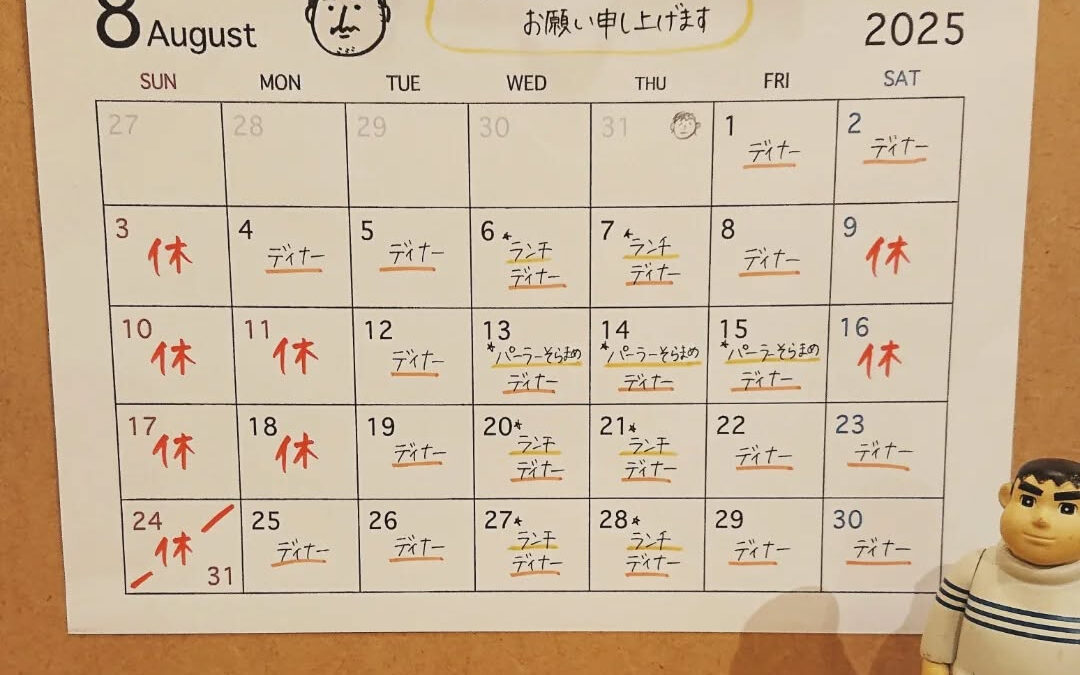 8 August
お願い申し上げます
2025
SUN MON TUE WED THU FRI SAT
27 28 29 30 31 1 2
ディナー ディナー
3 4 5 6 7 8 9
休 ディナー ディナー *ランチ *ランチ ディナー 休
ディナー ディナー
10 11 12 13 14 15 16
休 休 ディナー *パーラーそらまめ *パーラーそらまめ *パーラーそらまめ 休
ディナー ディナー ディナー
17 18 19 20 21 22 23
休 休 ディナー *ランチ *ランチ ディナー ディナー
ディナー ディナー
24 25 26 27 28 29 30
休 ディナー ディナー *ランチ *ランチ ディナー ディナー
31 ディナー ディナー